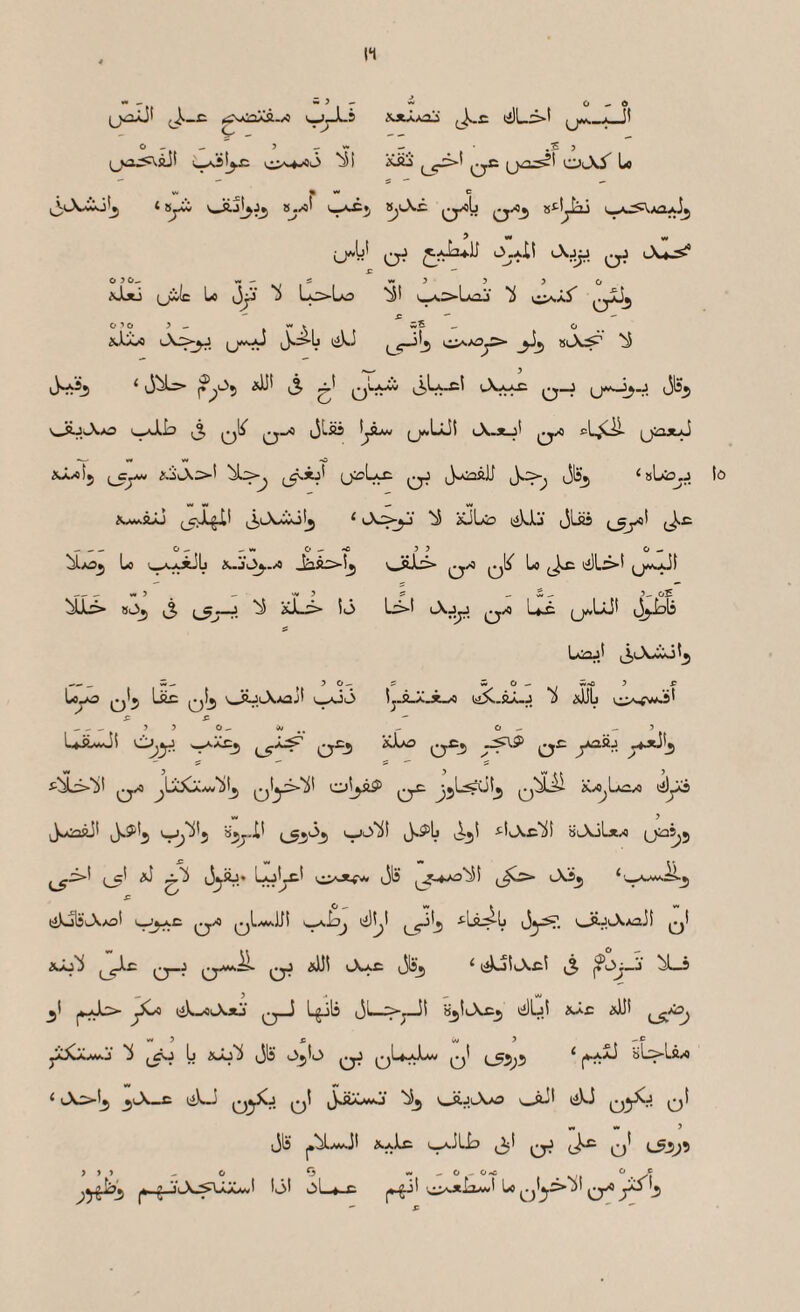 اِلْبَسْ أخاك على تصنّعه فلرُبّ مفتضح على النصّ
ما كدتُ أفحص عن اخى ثقة الّا ذممتُ عواقب الفحص
نظراءه ومن يأمن غدره وانشدنى
محمّد بن يزيد للمطيع بن اياس
ولئن كنتَ لا تصاحب الّا صاحبا لا تزلّ ما عاش نعلُهْ
لا تجده ولو حرصتَ وأنّى لك بالخلّ ليس يوجد مثلُهْ
وقال يونس بن عبيد اعيانى شيئان اخ فى الله ودرهم حلال، وقيل
لبعض الحكماء من ابعد الناس سفرا فقال من كان فى طلب صديق
يرضاه، وقال رجل للفضيل بن عياض ابغنى رجلا احدّثه سرّى وآمنه
على امرى فقال تلك ضالّة لا توجد، وانشدنى المهلّبىّ لنفسه
اِلبسْ اخاك على ما كان من خُلُق واحفظْ مودّته بالغيب ما وصلا
فأطْوَلُ الناس غمّا من يريد اخا ذا خلّة لا يرى فى ودّه خللا
وانشدنى ايضا
أقسمتُ بالله لا ينفكّ مغتفرا ذنب الصديق وان عقّ وان صرما
والعمر يقصر عن هجر وعن صلة وعن تجنّى وعتب يورث السقما
فترك مصارمة الخلّان والتجاوز عن هفوات الاخوان والاستكثار من الاخلّاء
ورفض معاندة الاعداء اولى باهل الادب وذوى المروّة والوب واهل الفضل
والحسب، وقد حكى الاصمعىّ قال سمعت اعرابيّا يقول لأخ له اى اخى
انّ الصديق يحول بالجفاء وانّى اراك رطب اللسان من عيوب اصدقائك
فلا تزدهم فى اعدائك، وقال عبد الله بن الحسن بن علىّ لابنه
رضّى الله عنه ايّاك وعداوة الرجال فانّها لن تعدمك مكر حليم او
مفاجاة لئيم، وروى ان سليمان بن داود قال لابنه يا بُنىّ لا تستكثر
ان يكون لك الف صديق ولا تستقلّ ان يكون لك عدوّ واحد،
وروى ان علىّ بن ابى طالب عليه السلام قال
وأكثرْ من الاخوان ما اسطعتَ انّهم عماد اذا استنجدتَهم وظهورُ